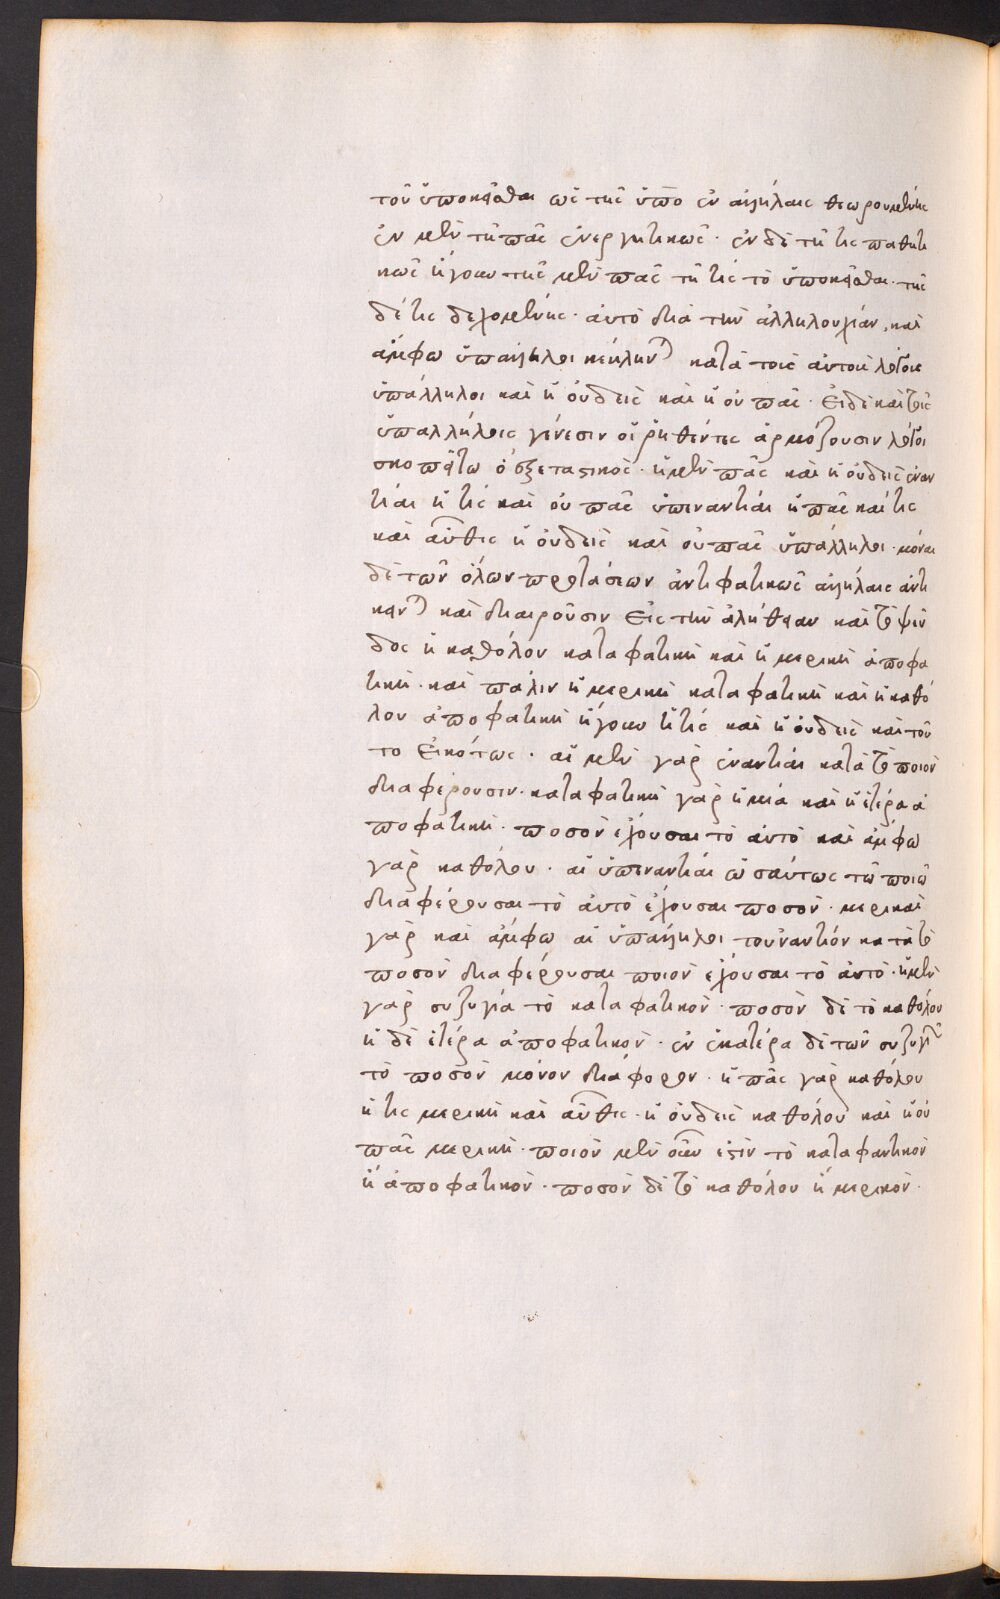 τοῦ ὑποκεῖσθαι ὡς τῆς ὑπὸ ἐν ἀλλήλαις θεωρουμένης
ἐν μὲν τῆ πᾶς ἐνεργητικῶς· ἐν δὲ τῆ τὶς παθητι
κῶς ἤγουν τῆς μὲν πᾶς τῆ τὶς τὸ ὑποκεῖσθαι· τῆς
δέ τις δεχομένης· αὐτὸ διὰ τὴν ἀλληλουχίαν, καὶ
ἄμφω ὑπάλληλοι κέκλην) κατὰ τοὺς αὐτοὺς λόγους
ὑπάλληλοι καὶ ἡ οὐδεὶς καὶ ἡ οὐ πᾶς· Εἰ δὲ καὶ τοῖς
ὑπαλλήλοις γένεσιν οἱ ῥηθέντες ἁρμόζουσιν λόγοι
σκοπείτω ὁ ἐξεταστικός· ἡ μὲν πᾶς καὶ ἡ οὐδεὶς ἐναν
τίαι ἡ τὶς καὶ οὐ πᾶς ὑπεναντίαι ἡ πᾶς καί τις
καὶ αὖθις ἡ οὐδεὶς καὶ οὐ πᾶς ὑπάλληλοι· μόναι
δὲ τῶν ὅλων προτάσεων ἀντιφατικῶς ἀλλήλαις ἀντι
κειν) καὶ διαιροῦσιν Εἰς τὴν ἀλήθειαν καὶ τὸ ψεῦ
δος ἡ καθόλου καταφατικὴ καὶ ἡ μερικὴ ἀποφα
τική· καὶ πάλιν ἡ μερικὴ καταφατικὴ καὶ ἡ καθό
λου ἀποφατικὴ ἤγουν ἡ τὶς καὶ ἡ οὐδεὶς καὶ τοῦ
το Εἰκότως· αἱ μὲν γὰρ ἐναντίαι κατὰ τὸ ποιὸν
διαφέρουσιν· καταφατικὴ γὰρ ἡ μία καὶ ἡ ἑτέρα ἀ
ποφατική· ποσὸν ἔχουσαι τὸ αὐτὸ καὶ ἄμφω
γὰρ καθόλου· αἱ ὑπεναντίαι ὡσαύτως τῶ ποιῶ
διαφέρουσαι τὸ αὐτὸ ἔχουσαι ποσόν· μερικαὶ
γὰρ καὶ ἄμφω αἱ ὑπάλληλοι τουναντίον κατὰ τὸ
ποσὸν διαφέρουσαι ποιὸν ἔχουσαι τὸ αὐτό· ἡ μὲν
γὰρ συζυγία τὸ καταφατικόν· ποσὸν δὲ τὸ καθόλου
ἡ δὲ ἑτέρα ἀποφατικόν· ἐν ἑκατέρα δὲ τῶν συζυγιῶν
τὸ ποσὸν μόνον διάφορον· ἡ πᾶς γὰρ καθόλου
ἡ τὶς μερικὴ καὶ αὖθις· ἡ οὐδεὶς καθόλου καὶ ἡ οὐ
πᾶς μερική· ποιὸν μὲν οὖν ἐστὶν τὸ καταφαντικὸν
ἢ ἀποφατικόν· ποσὸν δὲ τὸ καθόλου ἢ μερικόν·